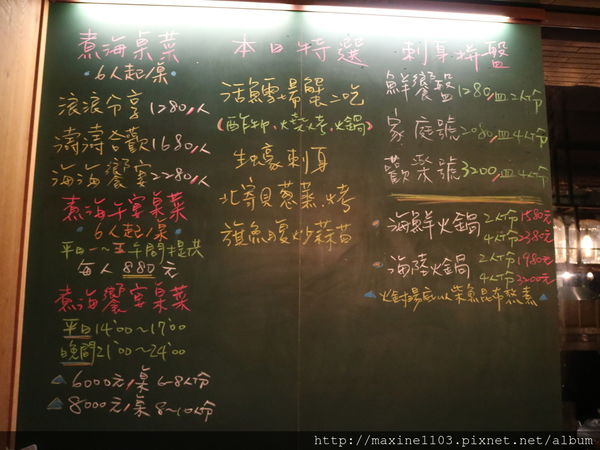 煮海桌菜
·6人起/桌·
滾浪分享1280/人
濤濤合歡1680/人
海海饗宴2280/人
煮海午宴桌菜
·6人起/桌·
平日一~五午間提供
每人 880元
煮海饗宴桌菜
平日14:00~17:00
晚間21:00~24:00
6000元/桌 6-8人份
8000元/桌 8~10人份
本日特選
活鱈場蟹二吃
(酢物、燒烤、火鍋)
生蠔刺身
北寄貝蔥蒸、烤
旗魚腹炒蒜苗
刺身拼盤
鮮饗盤1280/皿2人份
家庭號2080/皿4人份
歡聚號3200/皿4人份
海鮮火鍋 2人份1580元
4人份2380元
海陸火鍋 2人份1980元
4人份3200元
火鍋湯底以柴魚昆布熬煮
http://maxine1103.pixnet.net/album